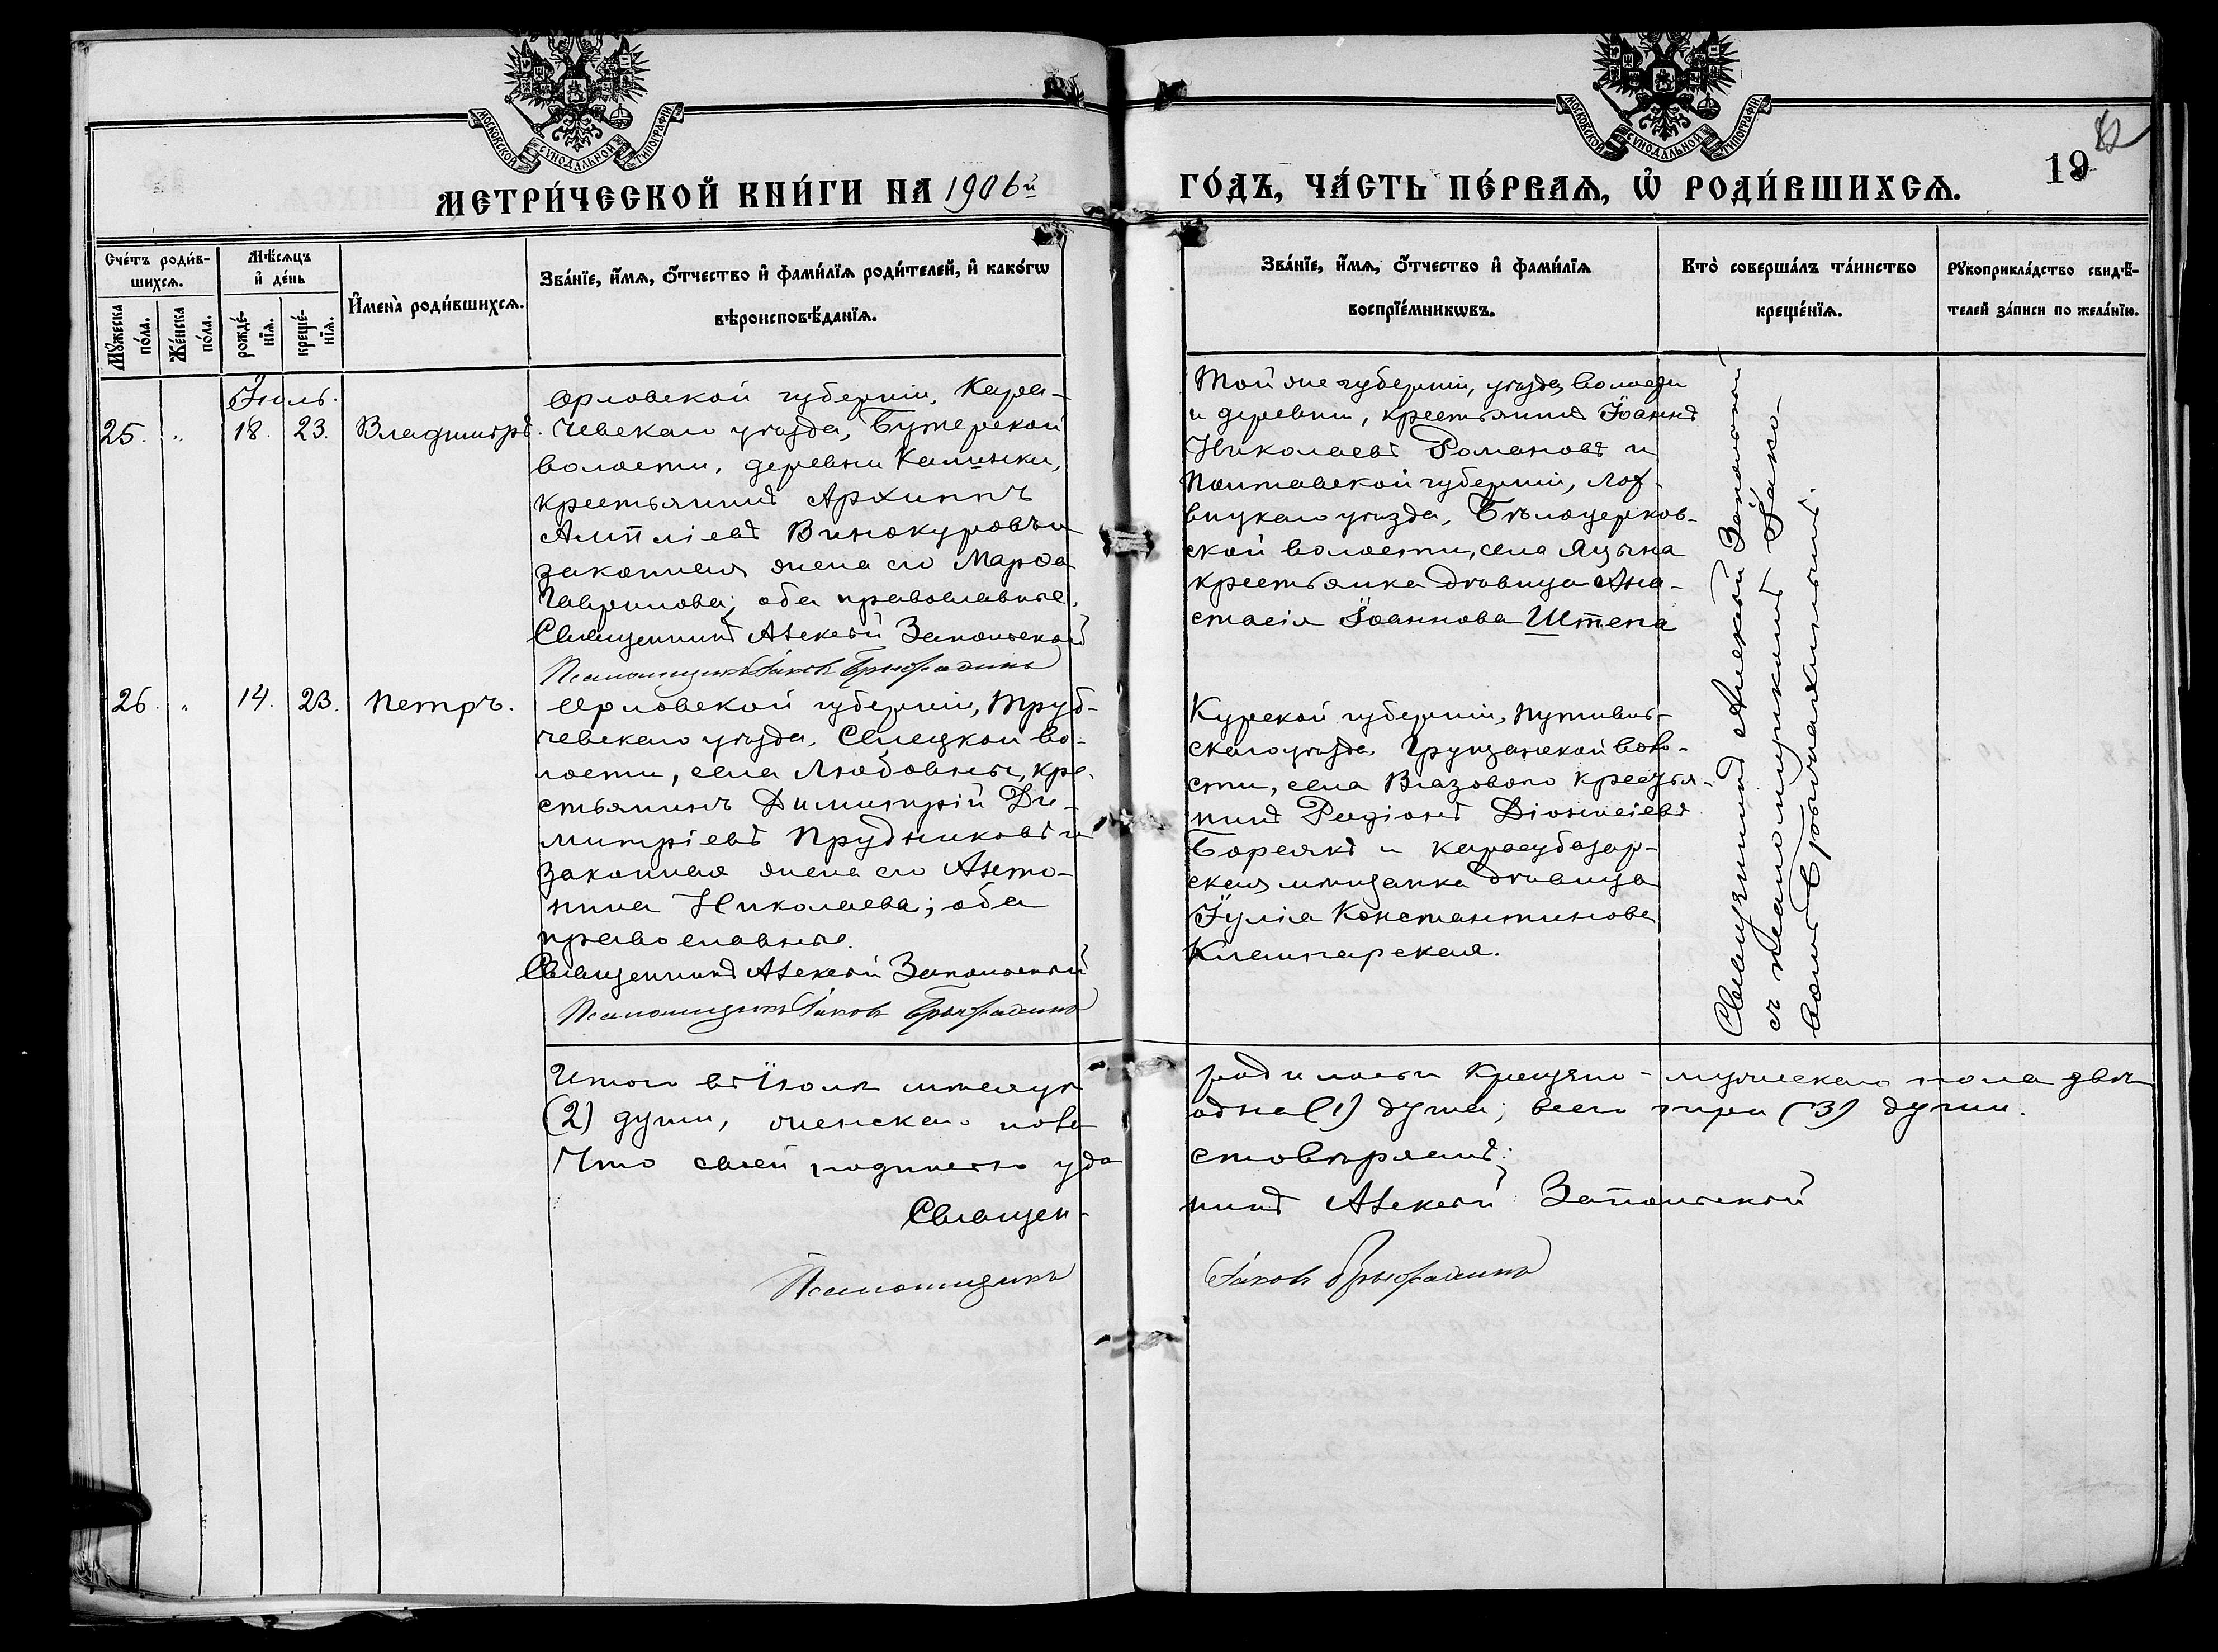 МОСКОВСКОЙ СѴНОДАЛЬНОЙ ТИПОГРАФІИ
МОСКОВСКОЙ СѴНОДАЛЬНОЙ ТИПОГРАФІИ
МЕТРИ́ЧЕСКОЙ КНИ́ГИ НА 1906й
ГО́ДЪ, ЧА́СТЬ ПЕ́РВАѦ, Ѡ҆ РОДИ́ВШИХСѦ.
19
Сче́тъ роди́в-
шихсѧ.
Мѣ́сѧцъ
и҆ де́нь
Мꙋ́жеска
по́ла.
Же́нска
по́ла.
рожде́-
нїѧ.
креще́-
нїѧ.
И҆мена̀ роди́вшихсѧ.
Зва́нїе, и҆́мѧ, о҆́тчество и҆ фами́лїѧ роди́телей, и҆ како́гѡ
вѣроисповѣ́данїѧ.
Зва́нїе, и҆́мѧ, о҆́тчество и҆ фами́лїѧ
воспрїе́мникѡвъ.
Кто̀ соверша́лъ та́инство
креще́нїѧ.
Рꙋкоприкла́дство свидѣ́-
телей за́писи по жела́нїю.
Іюль.
25. „ 18. 23. Владиміръ.
Орловской губерніи, Кара-
чевскаго уѣзда, Бутерской
волости, деревни Калинки,
крестьянинъ Архиппъ
Амплiевъ Винокуровъ и
законная жена его Марѳа
Гаврилова; оба православные.
Священникъ Алексѣй Запольской
Псаломщикъ Іаковъ
Той же губерніи, уѣзда, волости
и деревни, крестьянинъ Іоаннъ
Николаевъ Романовъ и
Полтавской губерніи, Лох-
вицкаго уѣзда, Бѣлоцерков-
ской волости, села Яцына
крестьянка дѣвица Ана-
стасія Іоаннова Штепа
26. „ 14. 23. Петръ.
Орловской губерніи, Труб-
чевскаго уѣзда, Селецкой во-
лости, села Любовны, кре-
стьянинъ Димитрій Ди-
митріевъ Прудниковъ и
законная жена его Анто-
нина Николаева; оба
православные.
Священникъ Алексѣй Запольской
Псаломщикъ Іаковъ
Курской губерніи, Путивль-
скаго уѣзда, Грузчанской воло-
сти, села Вязоваго крестья-
нинъ Родіонъ Діонисіевъ
Борсякъ и карасубазар-
ская мѣщанка дѣвица
Іулія Константинова
Священникъ Алексѣй Запольской
съ псаломщикомъ Іако-
вомъ
Итого въ Іюлѣ мѣсяцѣ родилось и крещено мужескаго пола двѣ
(2) души, женскаго пола одна (1) душа; всего три (3) души.
Что своей подписью удостовѣряемъ:
Священникъ Алексѣй Запольской
Псаломщикъ Іаковъ